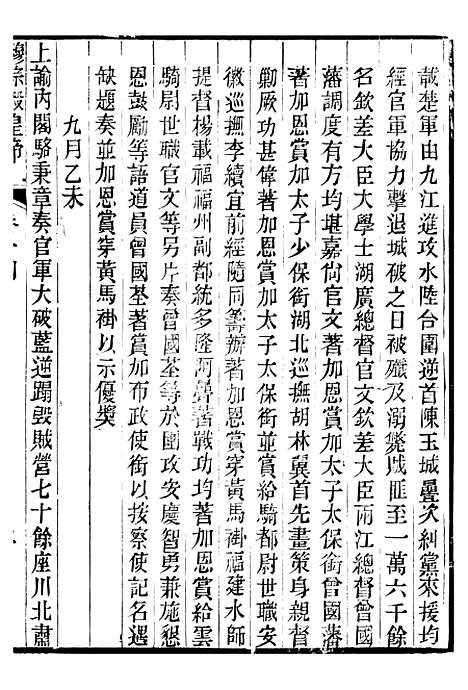 載楚軍由九江進攻水陸合圍逆首陳玉城疊次糾黨來援均
經官軍協力擊退城破之日被殲及溺斃賊匪至一萬六千餘
名欽差大臣大學士湖廣總督官文欽差大臣兩江總督曾國
藩調度有方均堪嘉尚官文著加恩賞加太子太保銜曾國藩
著加恩賞加太子少保銜湖北巡撫胡林翼首先畫策身親督
勦厥功甚偉著加恩賞加太子太保銜並賞給騎都尉世職安
徽巡撫李續宜前經隨同籌辦著加恩賞穿黃馬褂福建水師
提督楊載福福州副都統多隆阿鼻著戰功均著加恩賞給雲
騎尉世職官文等另片奏曾國荃等於圍攻安慶智勇兼施懇
恩鼓勵等語道員曾國荃著賞加布政使銜以按察使記名遇
缺題奏並加恩賞穿黃馬褂以示優獎
九月乙未
上諭內閣駱秉章奏官軍大破藍逆蹋毀賊營七十餘座川北肅
穆宗毅皇帝